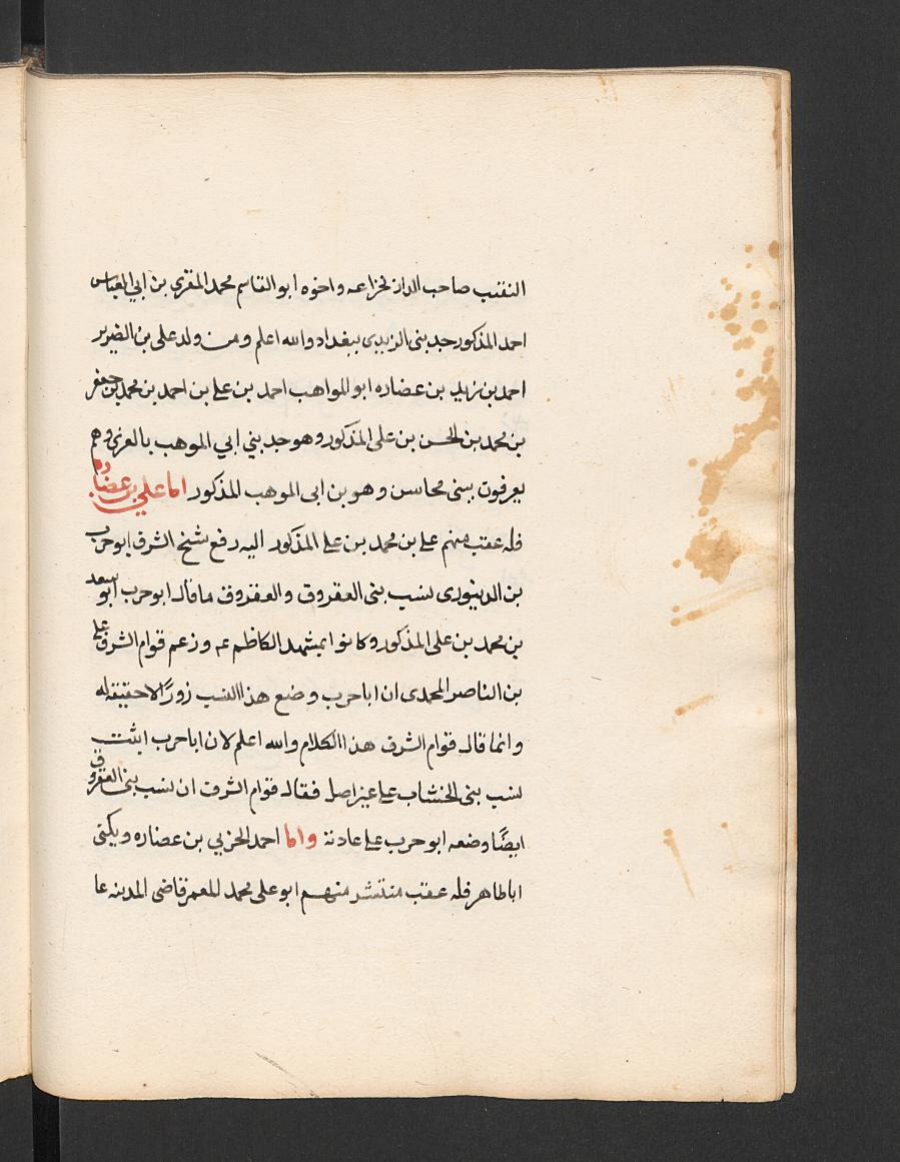 النقيب صاحب الدار بخزاعه واخوه ابو القاسم محمد المقري بن ابي العباس
احمد المذكور جد بنى الزيبدى ببغداد والله اعلم ومن ولد على بن الضرير
احمد بن زيد بن عضاره ابو المواهب احمد بن على بن احمد بن محمد بن جعفر
بن محمد بن الحسن بن على المذكور وهو جد بني ابي الموهب بالغرى وهم
يعرفون ببنى محاسن وهو بن ابى الموهب المذكور اما على بن عضاره
فله عقب منهم على بن محمد بن على المذكور اليه رفع شيخ الشرف ابو حرب
بن الدينورى نسب بنى العقروق والعقروق ما قال ابو حرب ابو سعد
بن محمد بن على المذكور وكانوا بمشهد الكاظم عم وزعم قوام الشرف على
بن الناصر المحمدى ان ابا حرب وضع هذا النسب زورًا لا حقيقه له
وانما قال قوام الشرف هذا الكلام والله اعلم لان ابا حرب اثبت
نسب بنى الخشاب على غير اصل فقال قوام الشرف ان نسب بنى العقروق
ايضًا وضعه ابو حرب على عادته واما احمد الحزبي بن عضاره ويكنى
ابا طاهر فله عقب منتشر منهم ابو على محمد المعمر قاضى المدينه عا